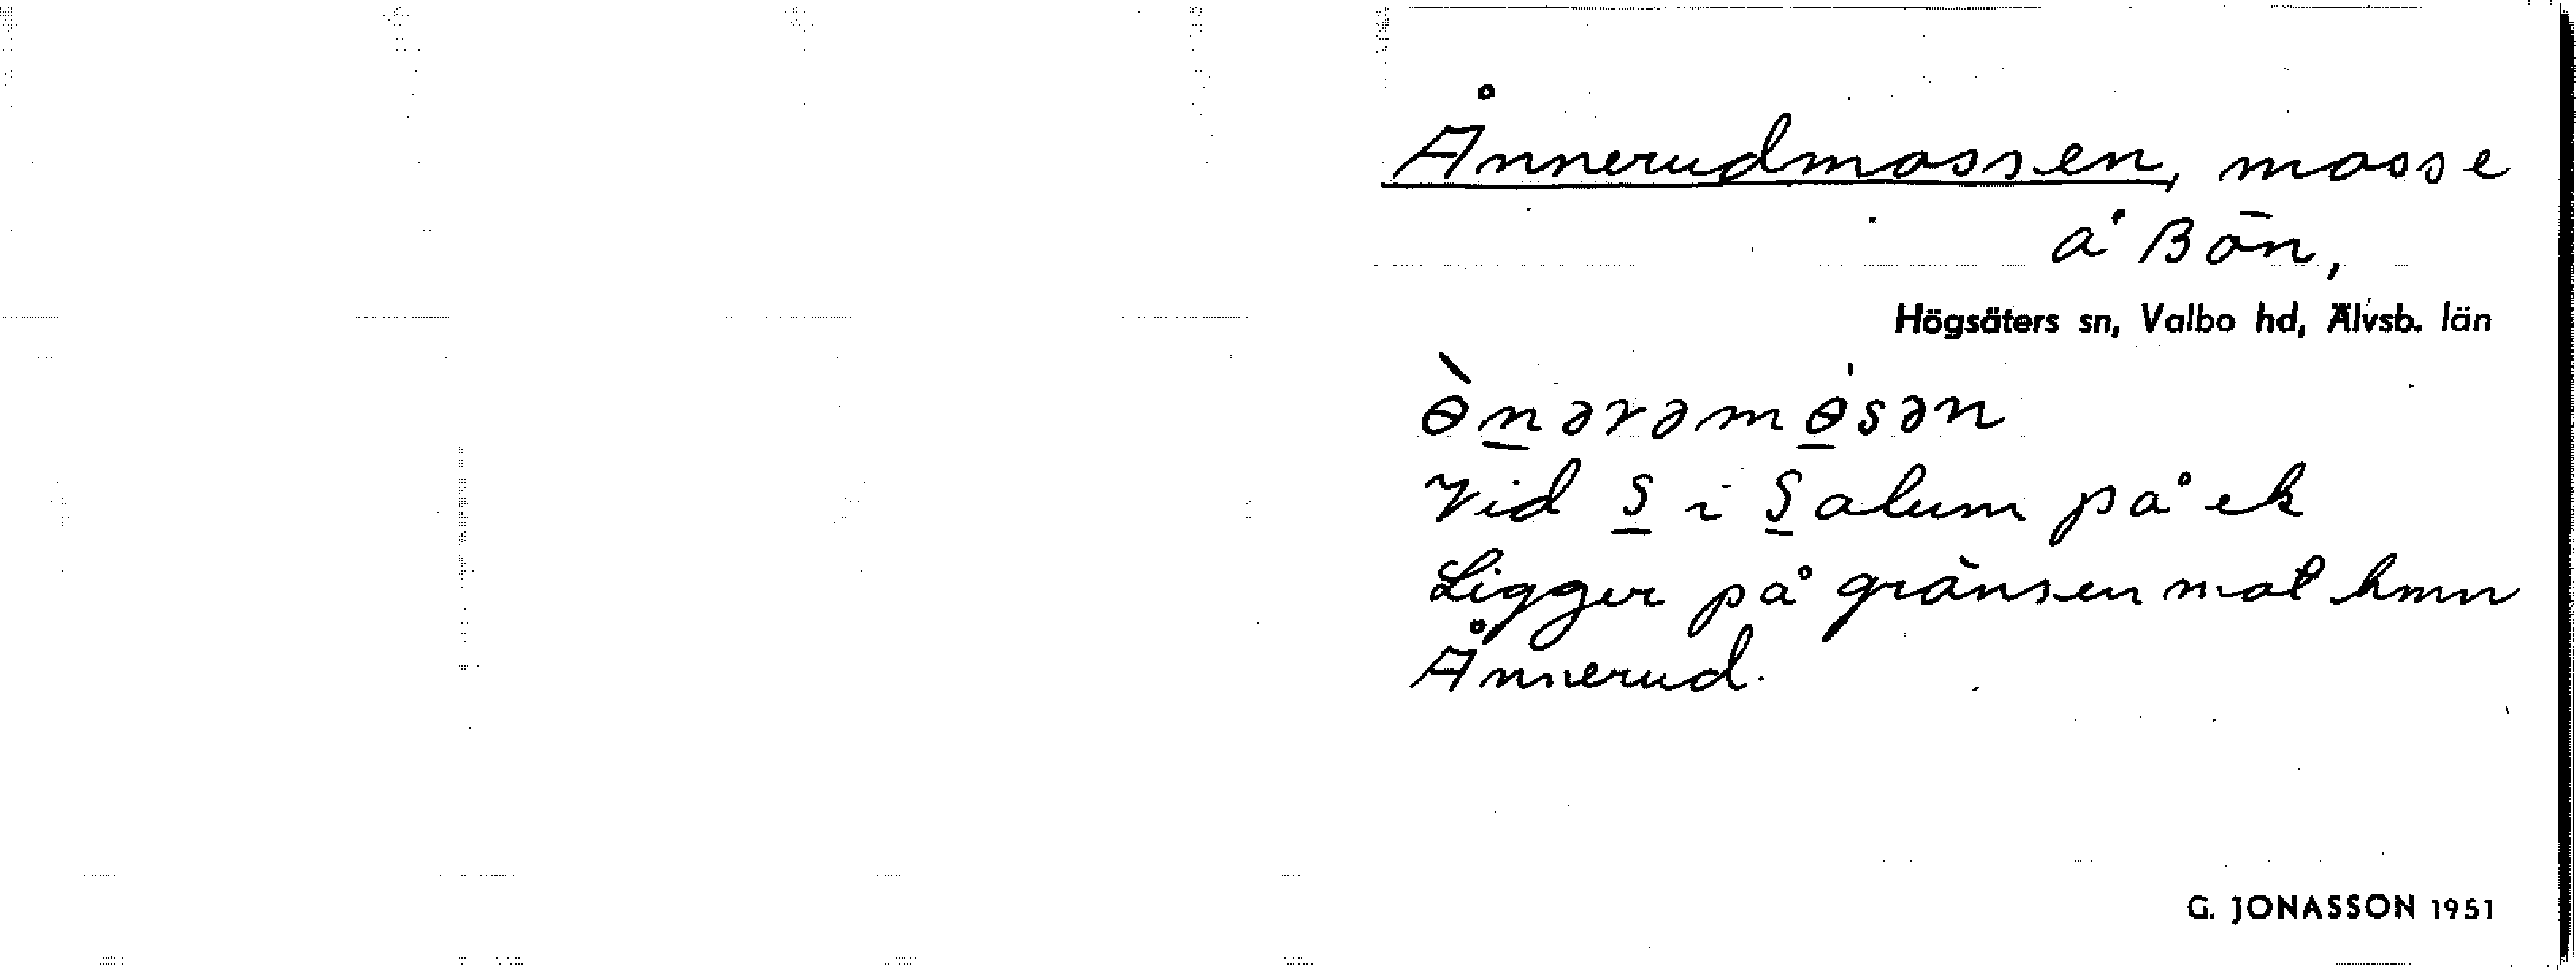 Ånnerudmossen, mosse
å Bön,
Högsäters sn, Valbo hd, Älvsb. län
ɵ̀n̲ərəmɵ̲́sən
Vid S̲ i S̲alum på ek
Ligger på gränsen mot hmn
Ånnerud.
G. JONASSON 1951